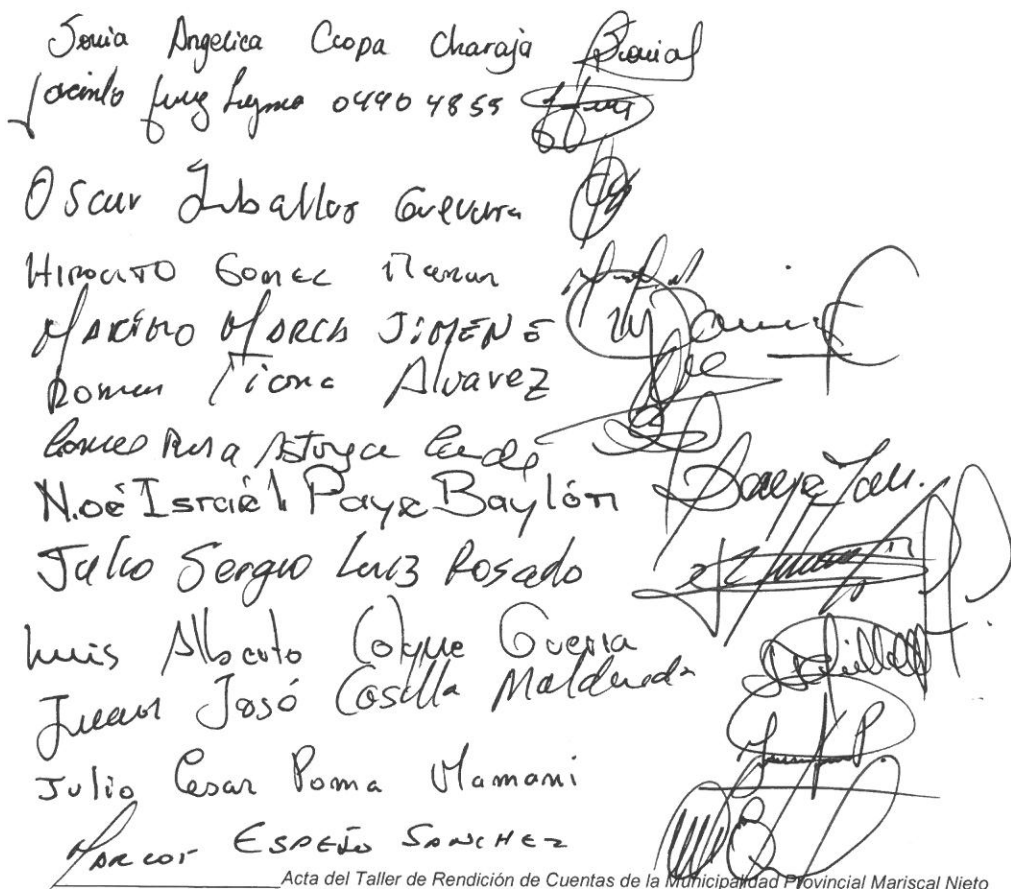 Sonia Angelica Ccopa Charaja
Jacinto 04904855
Oscar Zeballos Guevara
HIPOLITO Gomez Mamani
MAXIMO MARCA JIMENE
Roman Ticona Alvarez
Rosa Astorga
Noé Israél Paye Baylón
Julio Sergio Luiz Rosado
Luis Alberto Colque Guerra
Juan José Casilla Maldonado
Julio Cesar Poma Mamani
MARCOS ESPEJO SANCHEZ
Acta del Taller de Rendición de Cuentas de la Municipalidad Provincial Mariscal Nieto